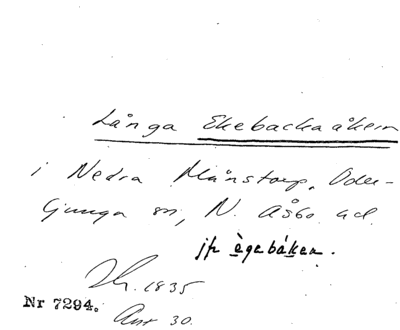 Långa Ekebackaåkern
i Nedra Månstorp, Oder-
ljunga sn, N. Åsbo hd.
jfr ègebáken.
1835
Nr 7294.
Ant 30.